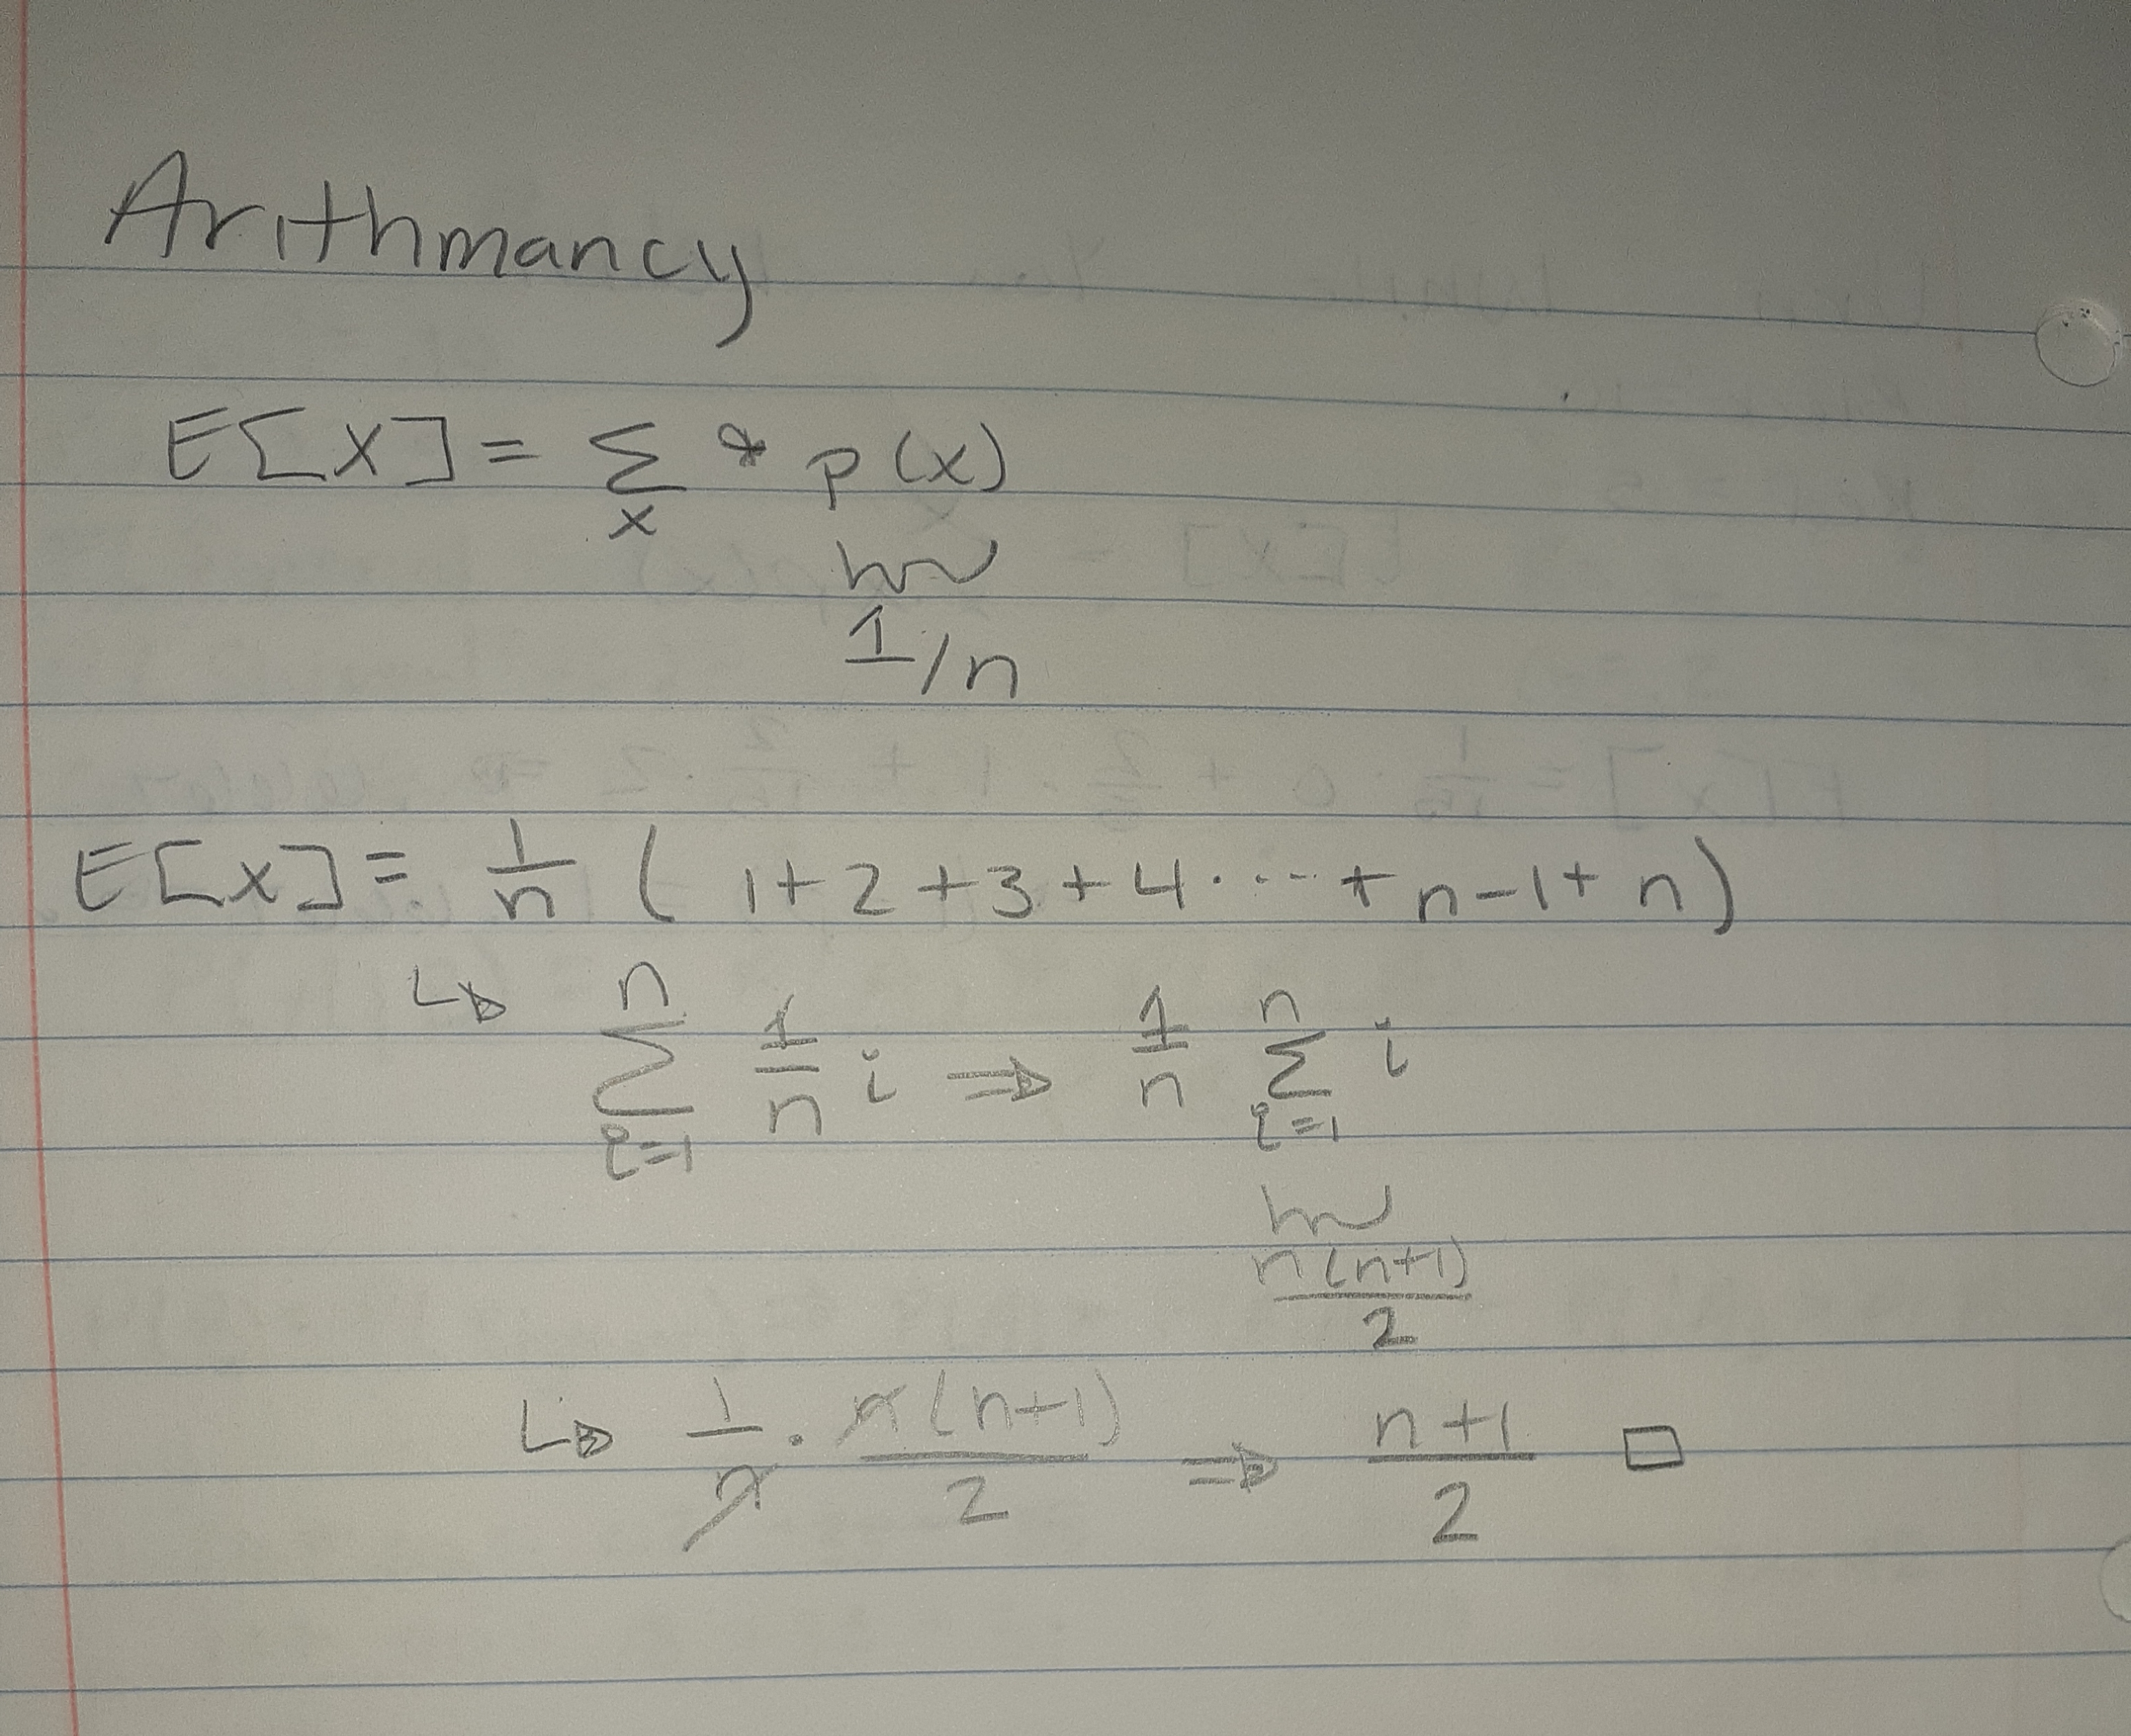 Arithmancy
E[X] = Σ * p(x)
x
1/n
E[X] = 1/n ( 1+2+3+4····+n-1+n)
↳ Σ_{i=1}^{n} 1/n i ⇒ 1/n Σ_{i=1}^{n} i
n(n+1)/2
↳ 1/n · n(n+1)/2 ⇒ n+1/2 □